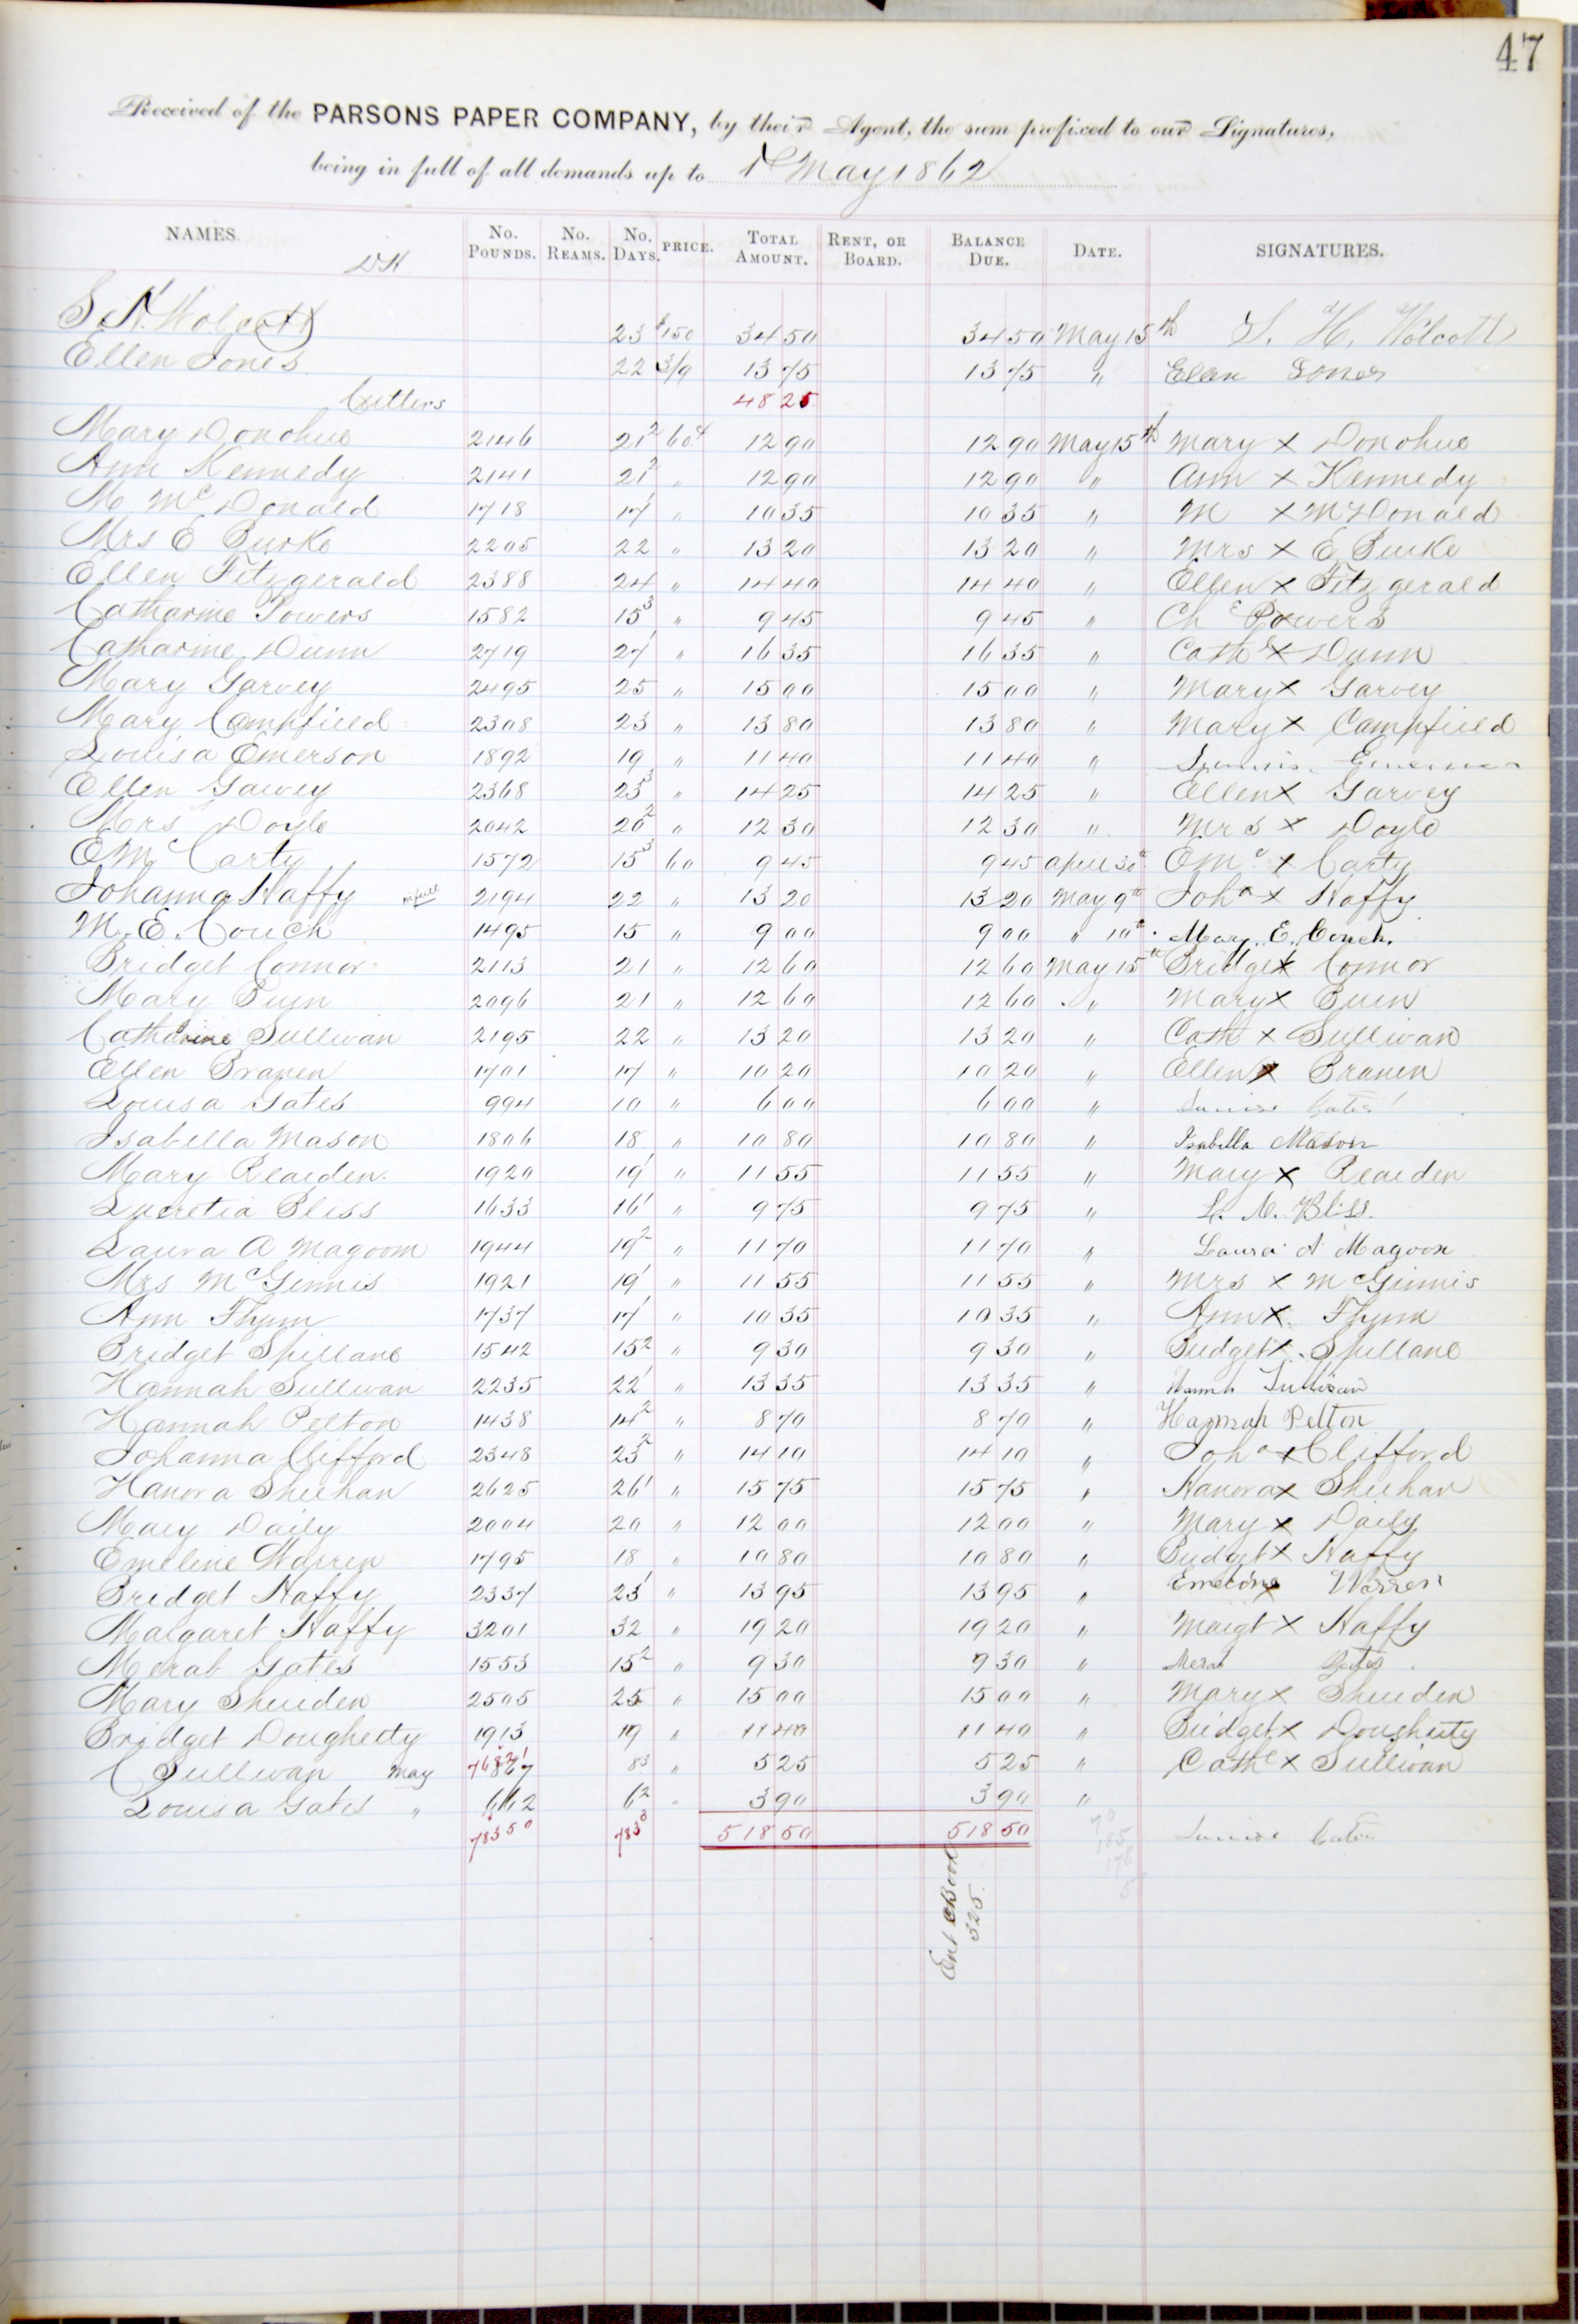 47
Received of the PARSONS PAPER COMPANY, by their Agent, the sum prefixed to our Signatures,
being in full of all demands up to 1st May 1862
NAMES. No. POUNDS. No. REAMS. No. DAYS. PRICE. TOTAL AMOUNT. RENT, OR BOARD. BALANCE DUE. DATE. SIGNATURES.
S. H. Wolcott 23 $150 34 50 34 50 May 15th S. H. Wolcott
Ellen Jones 22 3/9 13 75 13 75 " Ellen Jones
Cutters 48 25
Mary Donohue 2146 21 2 60c 12 90 12 90 May 15th Mary X Donohue
Ann Kennedy 2141 21 2 " 12 90 12 90 " Ann X Kennedy
M McDonald 1718 17 1 " 10 35 10 35 " M X McDonald
Mrs E Burke 2205 22 " 13 20 13 20 " Mrs X E Burke
Ellen Fitzgerald 2388 24 " 14 40 14 40 " Ellen X Fitzgerald
Catharine Powers 1582 15 3 " 9 45 9 45 " Ch e X Powers
Catharine Dunn 2719 27 1 " 16 35 16 35 " Cath e X Dunn
Mary Garvey 2495 25 " 15 00 15 00 " Mary X Garvey
Mary Campfield 2308 23 " 13 80 13 80 " Mary X Campfield
Louisa Emerson 1892 19 " 11 40 11 40 " Emerson
Ellen Garvey 2368 23 3 " 14 25 14 25 " Ellen X Garvey
Mrs Doyle 2042 20 2 " 12 30 12 30 " Mrs X Doyle
E McCarty 1572 15 3 60 9 45 9 45 April 30th E Mc X Carty
Johanna Haffy in full 2194 22 " 13 20 13 20 May 9th Joh a X Haffy
M. E. Couch 1495 15 " 9 00 9 00 " 10th Mary. E. Couch.
Bridget Connor 2113 21 " 12 60 12 60 May 15th Bridget X Connor
Mary Buin 2096 21 " 12 60 12 60 " Mary X Buin
Catharine Sullivan 2195 22 " 13 20 13 20 " Cath X Sullivan
Ellen Branen 1701 17 " 10 20 10 20 " Ellen X Branen
Louisa Gates 994 10 " 6 00 6 00 " Louise Gates
Isabella Mason 1806 18 " 10 80 10 80 " Isabella Mason
Mary Rearden 1920 19 1 " 11 55 11 55 " Mary X Rearden
Lucretia Bliss 1633 16 1 " 9 75 9 75 " L. M. Bliss.
Laura A Magoon 1944 19 2 " 11 70 11 70 " Laura A Magoon
Mrs McGinnis 1921 19 1 " 11 55 11 55 " Mrs X McGinnis
Ann Flynn 1737 17 1 " 10 35 10 35 " Ann X Flynn
Bridget Spillane 1542 15 2 " 9 30 9 30 " Bridget X Spillane
Hannah Sullivan 2235 22 1 " 13 35 13 35 " Hannah Sullivan
Hannah Pelton 1438 14 2 " 8 70 8 70 " Hannah Pelton
Johanna Clifford 2348 23 2 " 14 10 14 10 " Joh a X Clifford
Hanora Sheehan 2625 26 1 " 15 75 15 75 " Hanora X Sheehan
Mary Daily 2004 20 " 12 00 12 00 " Mary X Daily
Emeline Warren 1795 18 " 10 80 10 80 " Bridget X Haffy
Bridget Haffy 2337 23 1 " 13 95 13 95 " Emeline X Warren
Margaret Haffy 3201 32 " 19 20 19 20 " Margt X Haffy
Merab Gates 1553 15 2 " 9 30 9 30 " Merab Gates
Mary Sheriden 2505 25 " 15 00 15 00 " Mary X Sheriden
Bridget Dougherty 1913 19 " 11 40 11 40 " Bridget X Dougherty
C Sullivan May 8 3 " 5 25 5 25 " Cath e X Sullivan
Louisa Gates " 662 6 2 " 3 90 3 90 "
78350 783 0 518 50 518 50 Louise Gates
Ent C Book
325.